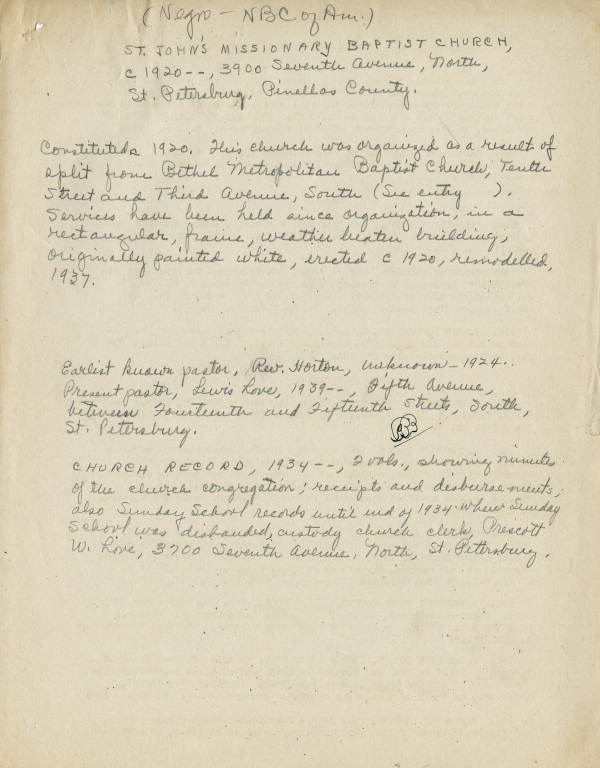 (Negro - NBC of Am.)
ST. JOHN'S MISSIONARY BAPTIST CHURCH,
c 1920--, 3900 Seventh Avenue, North,
St. Petersburg, Pinellas County.
Constituted 1920. This church was organized as a result of
split from Bethel Metropolitan Baptist Church, Tenth
Street and Third Avenue, South (See entry ).
Services have been held since organization, in a
rectangular, frame, weather beaten building;
originally painted white, erected c 1920, remodelled,
1937.
Earlist known pastor, Rev. Horton, unknown - 1924.
Present pastor, Lewis Love, 1939--, Fifth Avenue,
between Fourteenth and Fifteenth Streets, South,
St. Petersburg.
CHURCH RECORD, 1934--, 2 vols., showing minutes
of the church congregation; receipts and disbursements;
also Sunday School records until end of 1934 when Sunday
School was disbanded, custody church clerk, Prescott
W. Love, 3700 Seventh Avenue, North, St. Petersburg.